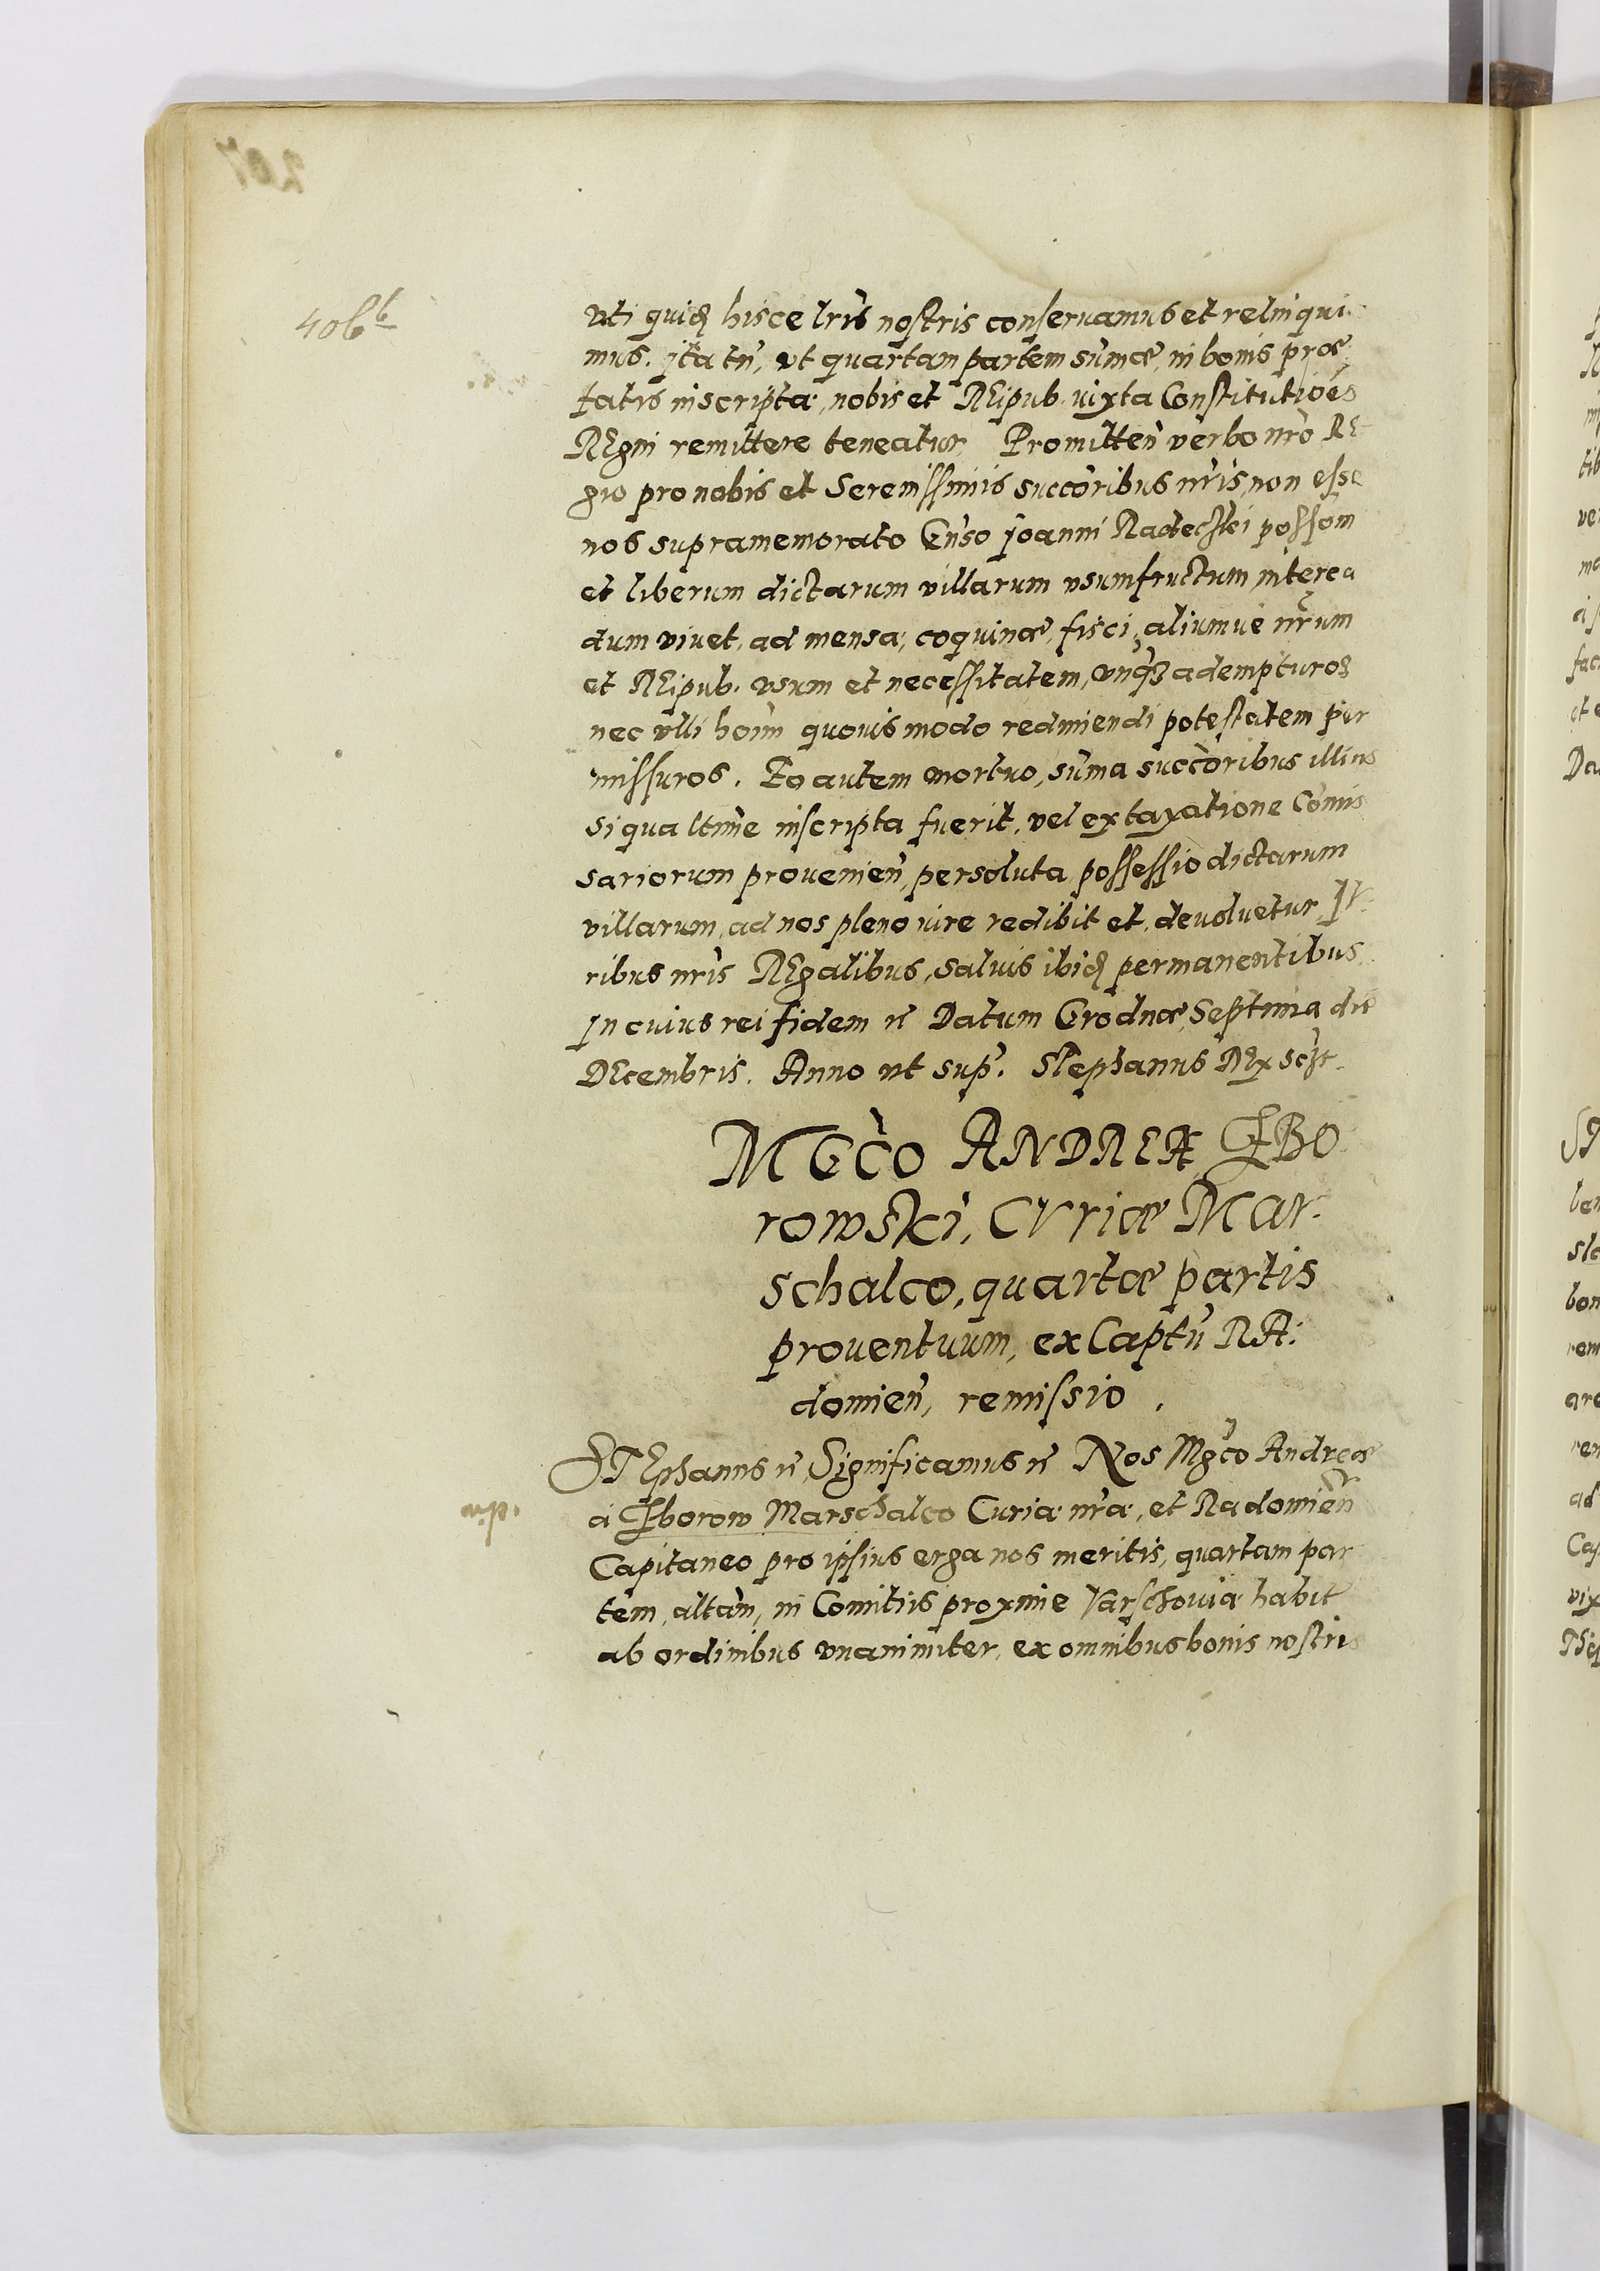 406b
vti quidẽ hisce lrĩs nostris conseruamus et relinqui-
mus. ita tñ, vt quartam partem sum̃æ, in bonis præ-
fatis inscriptæ, nobis et REipub. iuxta Constitutiões
REgni remittere teneatur. Promitteñ verbo nrõ RE-
gio pro nobis et Serenissimis succõribus nrĩs, non esse
nos supramemorato Gñso Joanni Radeczki possom
et liberum dictarum villarum vsumfructum, interea
dum viuet, ad mensæ, coquinæ, fisci, aliumue nrũm
et REipub. vsum et necessitatem, vnq̃ꝫ adempturos
nec vlli hoĩm quouis modo redimendi potestatem per
missuros. Eo autem mortuo, sum̃a succõribus illius
si qua ltĩme inscripta fuerit, vel ex taxatione Com̃is
sariorum proueniẽn, persoluta, possessio dictarum
villarum, ad nos pleno iure redibit et deuoluetur Iu-
ribus nrĩs REgalibus, saluis ibidẽ permanentibus.
In cuius rei fidem etc Datum Grodnæ, Septima die
DEcembris. Anno vt sup̃. Stephanus REx scpt.
MGCO ANDREÆ ZBO
rowski, CVriæ Mar-
schalco, quartæ partis
prouentuum, ex Captũ RA-
domieñ, remissio.
STEphanus etc Significamus etc Nos Mgc̃o Andreæ
à Zborow Marschalco Curiæ nrẽ, et Radomieñ
Capitaneo pro ipsius erga nos meritis, quartam par
tem, altãm, in Comitiis proxime Varschouiæ habit
ab ordinibus vnanimiter, ex omnibus bonis nostris